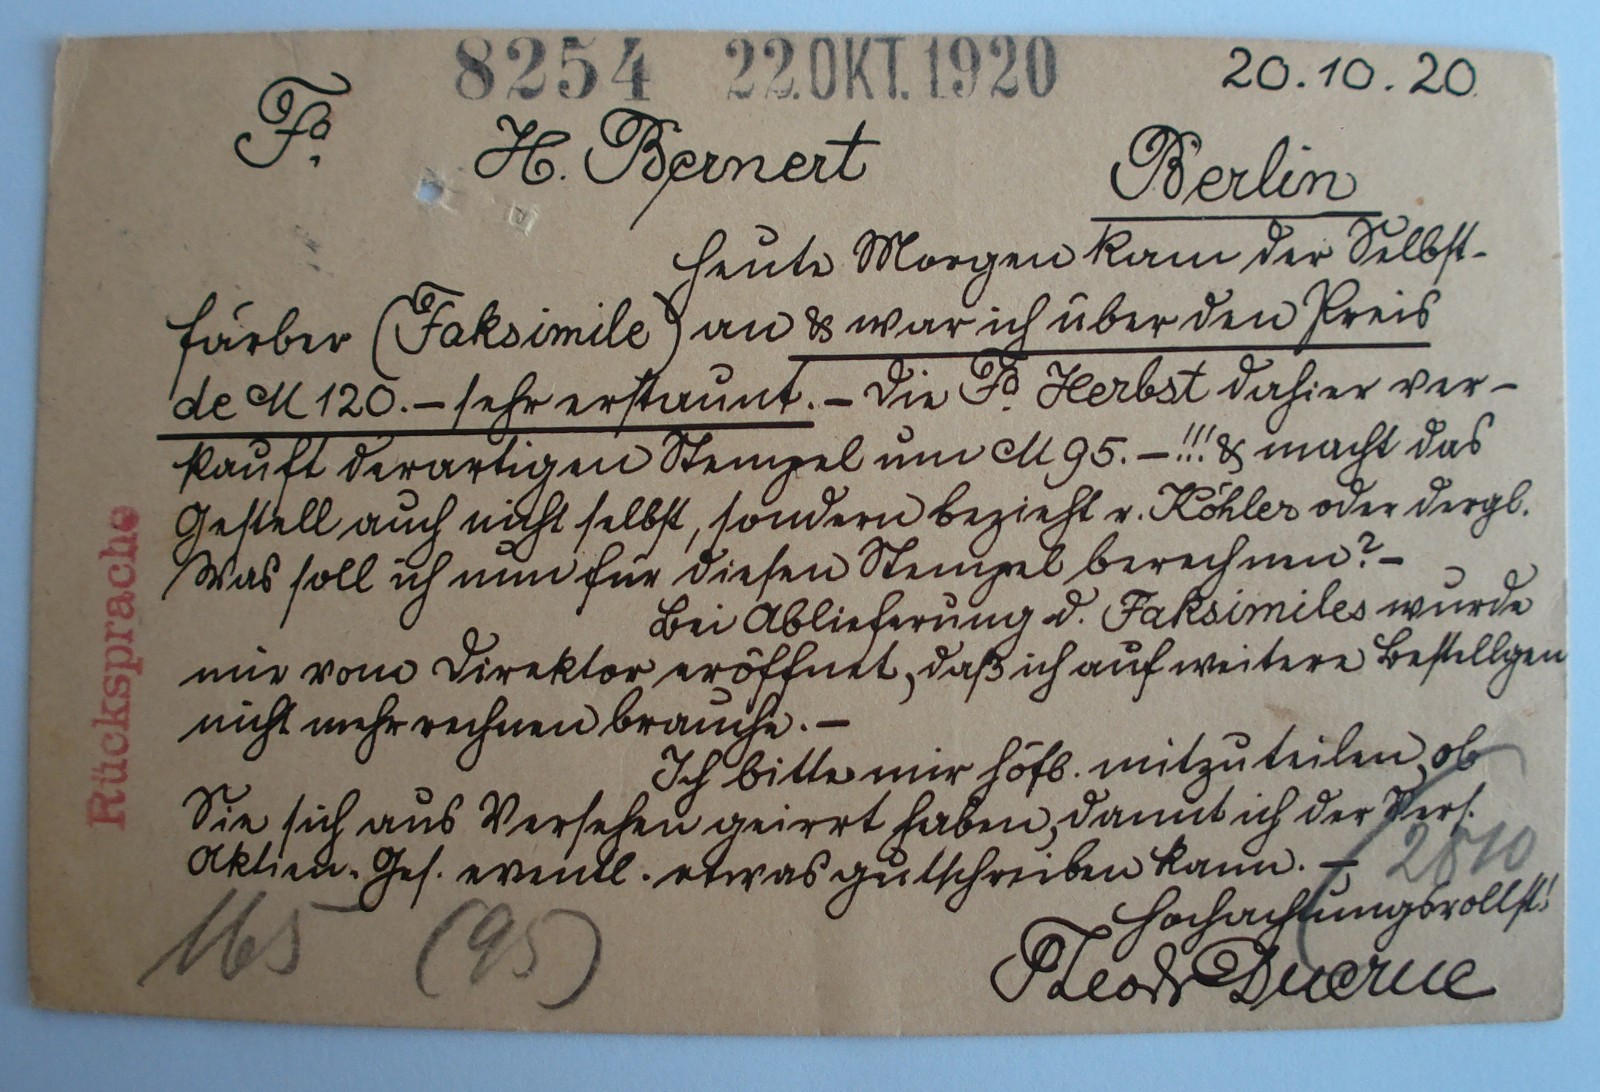 8254 22.OKT.1920 20.10.20
Fa. H. Bernert Berlin
Heute Morgen kam der Selbst-
färber (Faksimile) an & war ich über den Preis
de M 120.- sehr erstaunt. - Die Fa. Herbst dahier ver-
kauft derartigen Stempel um M 95.-!!! & macht das
Gestell auch nicht selbst, sondern bezieht v. Köhler oder dergl.
Was soll ich nun für diesen Stempel berechnen? -
Bei Ablieferung d. Faksimiles wurde
mir vom Direktor eröffnet, daß ich auf weitere Bestellgen
nicht mehr rechnen brauche. -
Ich bitte mir höfl. mitzuteilen, ob
Sie sich aus Versehen geirrt haben, damit ich der Vers.
Aktien-Ges. eventl. etwas gutschreiben kann. -
Hochachtungsvollst!
Theodr Ducrue
Rücksprache
165 (95)